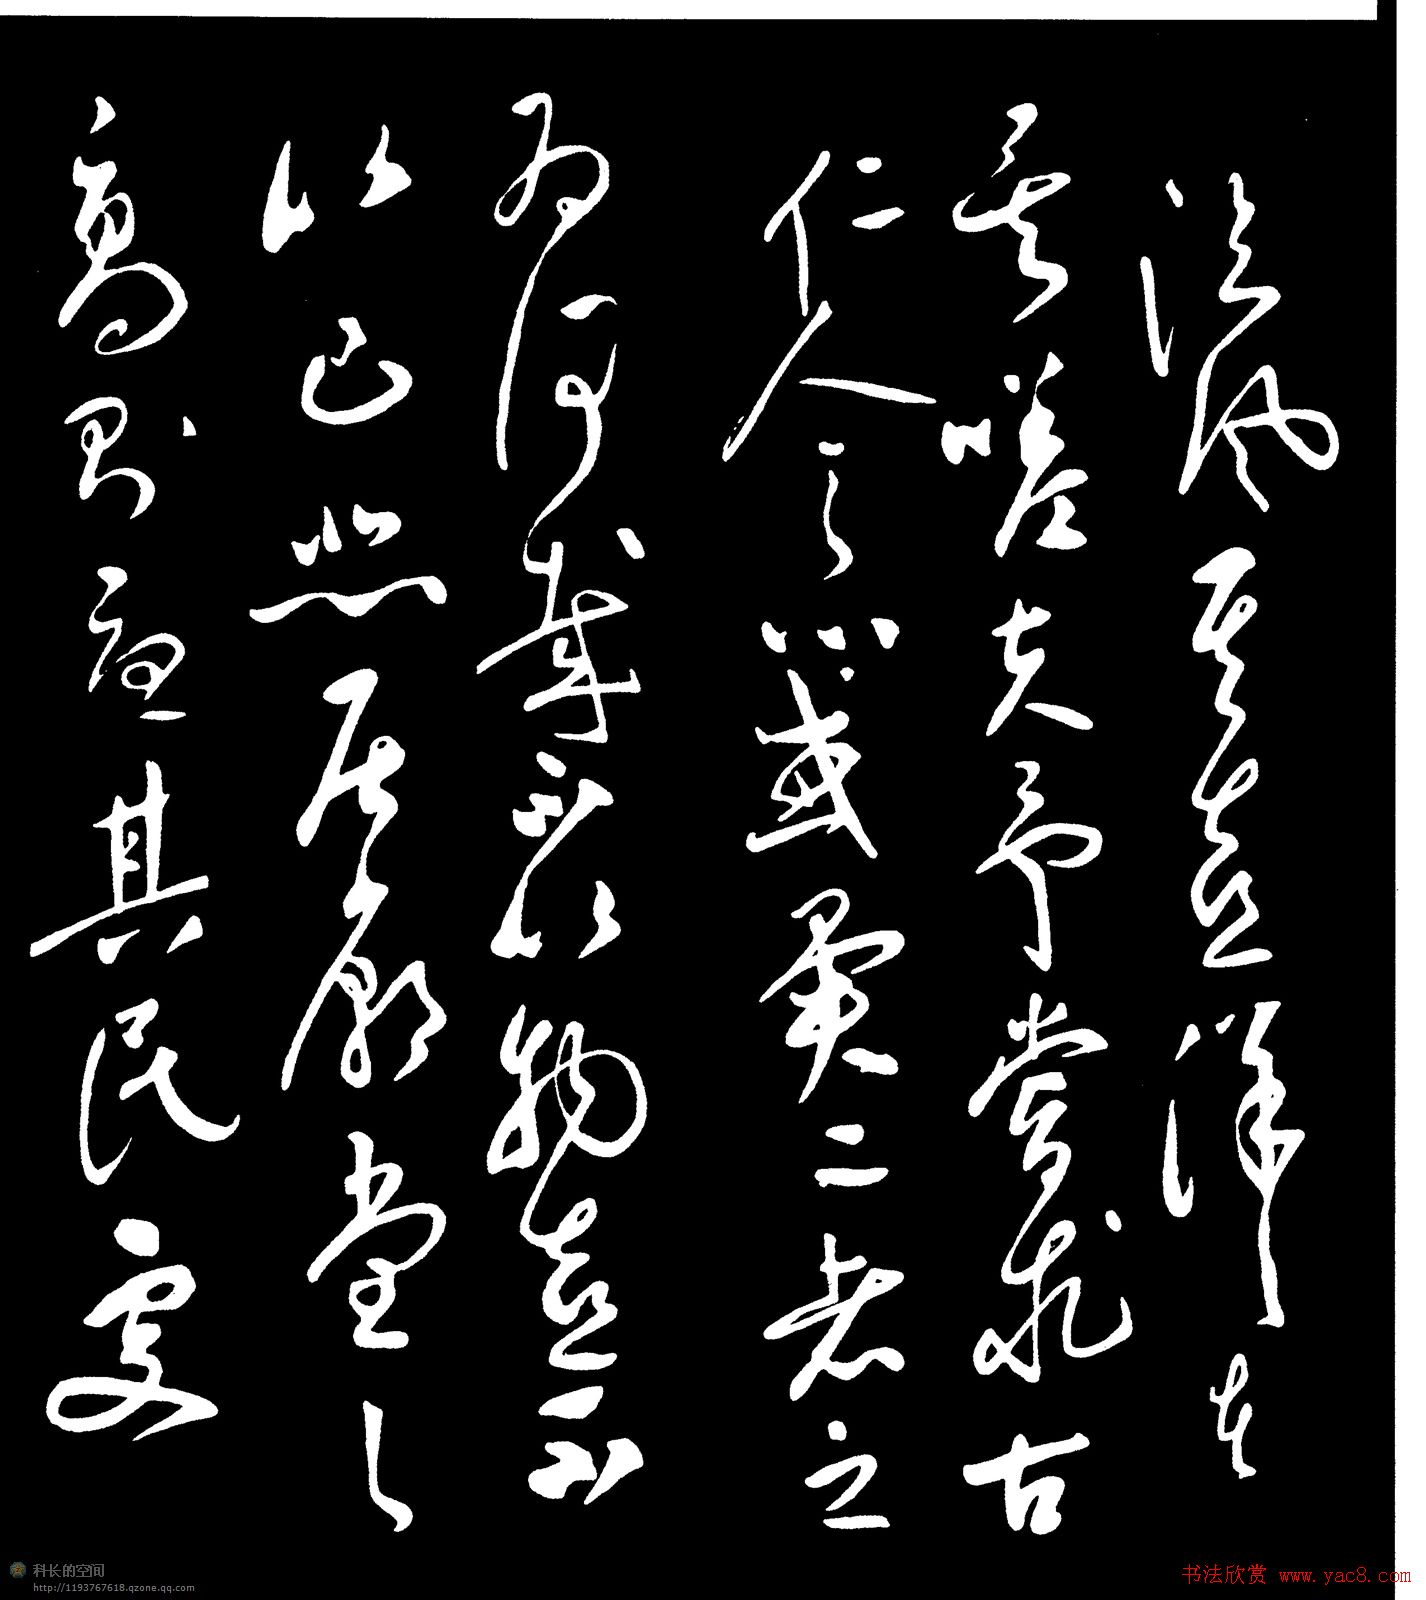 臨風其喜洋洋者
矣嗟夫予嘗求古
仁人之心或異二者之
為何哉不以物喜不
以己悲居廟堂之
高則憂其民處
科长的空间
http://1193767618.qzone.qq.com
书法欣赏 www.yac8.com